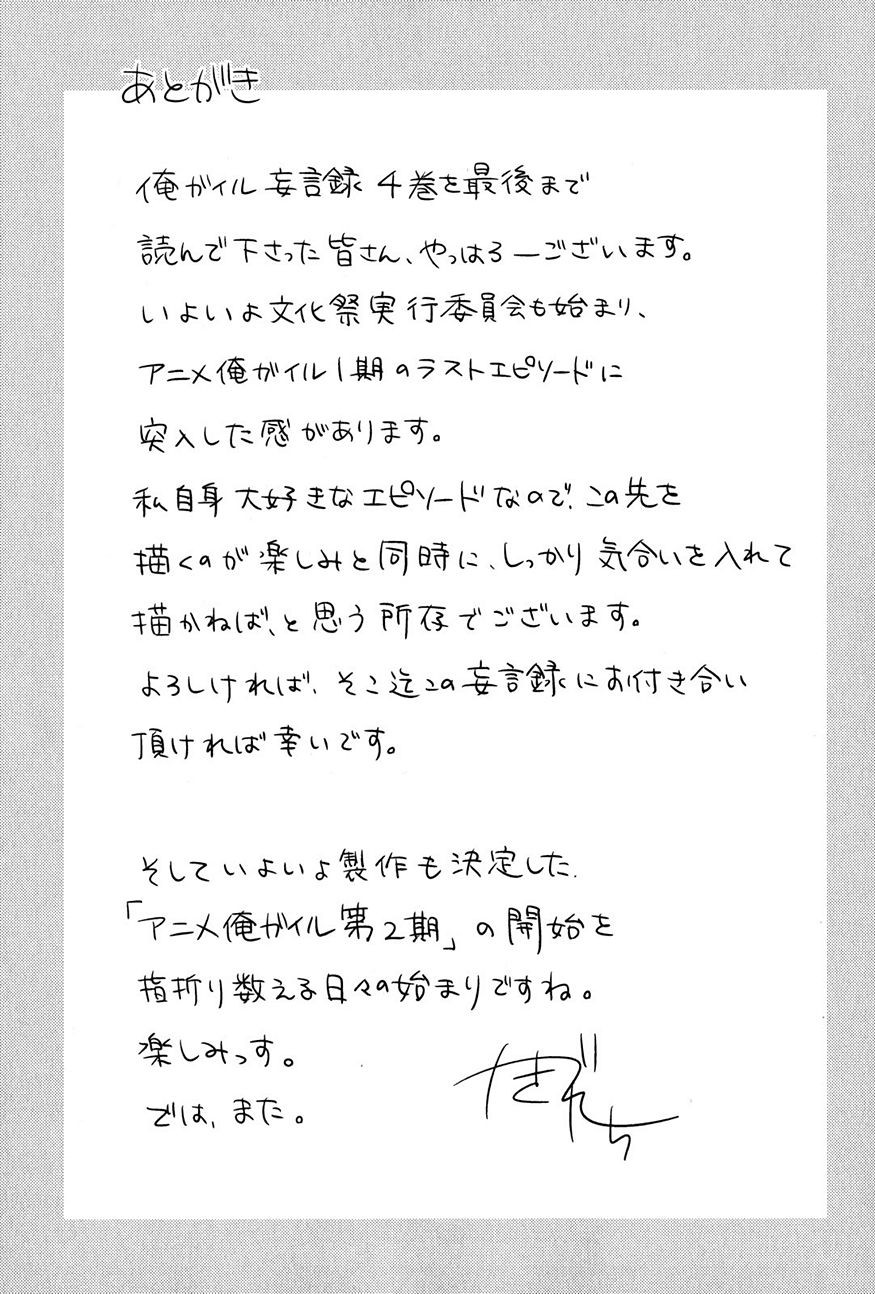 あとがき
俺ガイル妄言録4巻を最後まで
読んで下さった皆さん、やっはろーございます。
いよいよ文化祭実行委員会も始まり、
アニメ俺ガイル1期のラストエピソードに
突入した感があります。
私自身大好きなエピソードなので、この先を
描くのが楽しみと同時に、しっかり気合いを入れて
描かねば、と思う所存でございます。
よろしければ、そこ迄この妄言録にお付き合い
頂ければ幸いです。
そしていよいよ製作も決定した、
「アニメ俺ガイル第2期」の開始を
指折り数える日々の始まりですね。
楽しみっす。
では、また。